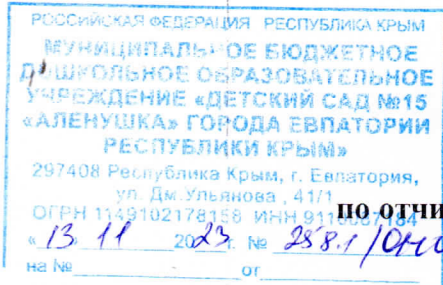 РОССИЙСКАЯ ФЕДЕРАЦИЯ РЕСПУБЛИКА КРЫМ
МУНИЦИПАЛЬНОЕ БЮДЖЕТНОЕ
ДОШКОЛЬНОЕ ОБРАЗОВАТЕЛЬНОЕ
УЧРЕЖДЕНИЕ «ДЕТСКИЙ САД №15
«АЛЕНУШКА» ГОРОДА ЕВПАТОРИИ
РЕСПУБЛИКИ КРЫМ»
297408 Республика Крым, г. Евпатория,
ул. Дм.Ульянова , 41/1
ОГРН 1149102178158 ИНН
по отчи
« 13 » 11 2023 г. № 258.1/
на № от